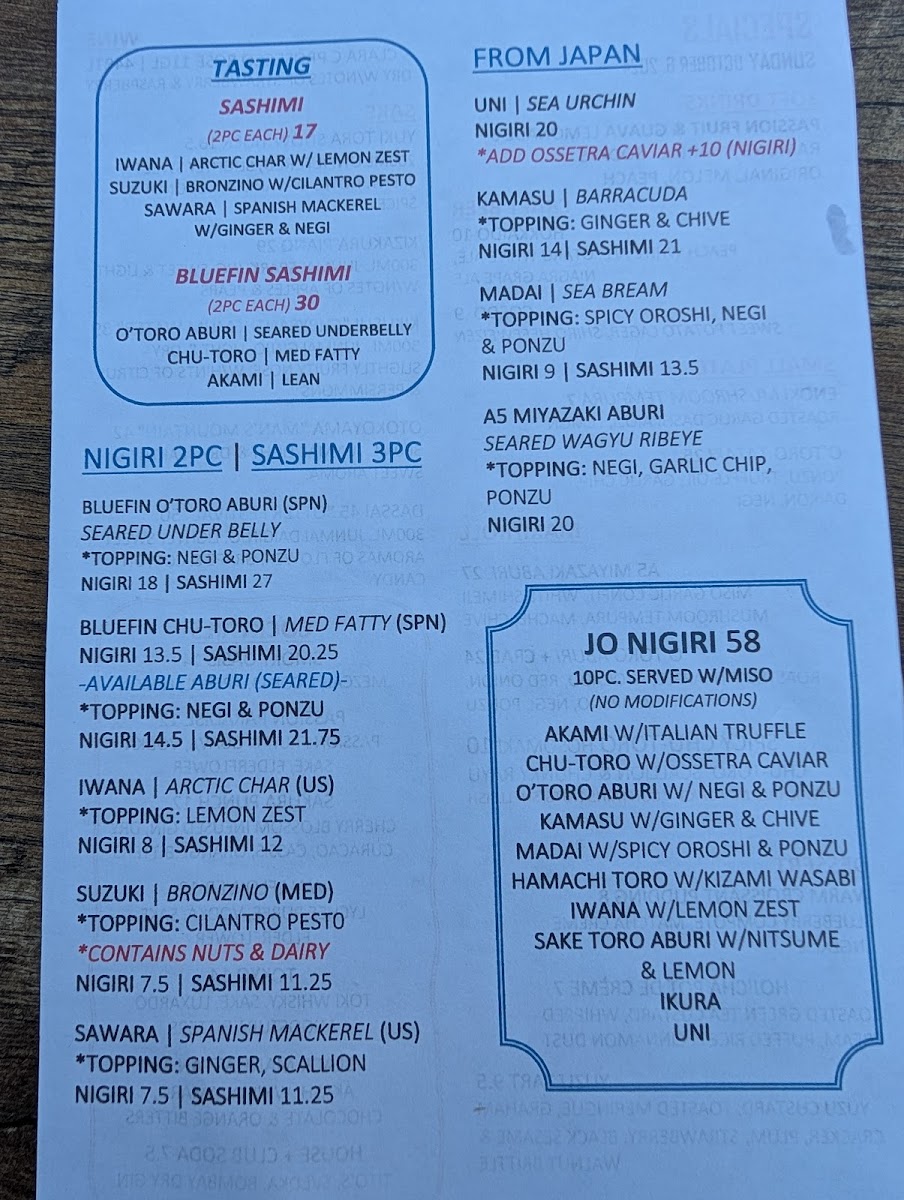 TASTING
SASHIMI
(2PC EACH) 17
IWANA | ARCTIC CHAR W/ LEMON ZEST
SUZUKI | BRONZINO W/CILANTRO PESTO
SAWARA | SPANISH MACKEREL
W/GINGER & NEGI
BLUEFIN SASHIMI
(2PC EACH) 30
O'TORO ABURI | SEARED UNDERBELLY
CHU-TORO | MED FATTY
AKAMI | LEAN
NIGIRI 2PC | SASHIMI 3PC
BLUEFIN O'TORO ABURI (SPN)
SEARED UNDER BELLY
*TOPPING: NEGI & PONZU
NIGIRI 18 | SASHIMI 27
BLUEFIN CHU-TORO | MED FATTY (SPN)
NIGIRI 13.5 | SASHIMI 20.25
-AVAILABLE ABURI (SEARED)-
*TOPPING: NEGI & PONZU
NIGIRI 14.5 | SASHIMI 21.75
IWANA | ARCTIC CHAR (US)
*TOPPING: LEMON ZEST
NIGIRI 8 | SASHIMI 12
SUZUKI | BRONZINO (MED)
*TOPPING: CILANTRO PESTO
*CONTAINS NUTS & DAIRY
NIGIRI 7.5 | SASHIMI 11.25
SAWARA | SPANISH MACKEREL (US)
*TOPPING: GINGER, SCALLION
NIGIRI 7.5 | SASHIMI 11.25
FROM JAPAN
UNI | SEA URCHIN
NIGIRI 20
*ADD OSSETRA CAVIAR +10 (NIGIRI)
KAMASU | BARRACUDA
*TOPPING: GINGER & CHIVE
NIGIRI 14| SASHIMI 21
MADAI | SEA BREAM
*TOPPING: SPICY OROSHI, NEGI
& PONZU
NIGIRI 9 | SASHIMI 13.5
A5 MIYAZAKI ABURI
SEARED WAGYU RIBEYE
*TOPPING: NEGI, GARLIC CHIP,
PONZU
NIGIRI 20
JO NIGIRI 58
10PC. SERVED W/MISO
(NO MODIFICATIONS)
AKAMI W/ITALIAN TRUFFLE
CHU-TORO W/OSSETRA CAVIAR
O'TORO ABURI W/ NEGI & PONZU
KAMASU W/GINGER & CHIVE
MADAI W/SPICY OROSHI & PONZU
HAMACHI TORO W/KIZAMI WASABI
IWANA W/LEMON ZEST
SAKE TORO ABURI W/NITSUME
& LEMON
IKURA
UNI